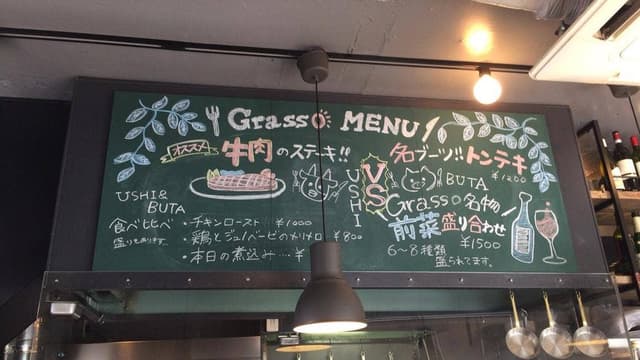 Grasso MENU
オススメ
牛肉のステーキ!!
名ブーツ!! トンテキ
¥1200
USHI
VS
BUTA
USHI &
BUTA
食べ比べ
盛りもあります。
・チキンロースト ¥1000
・鶏とジュノベーゼのメリメロ ¥800
・本日の煮込み…¥
Grasso名物
前菜盛り合わせ
¥1500
6〜8種類
盛られてます。